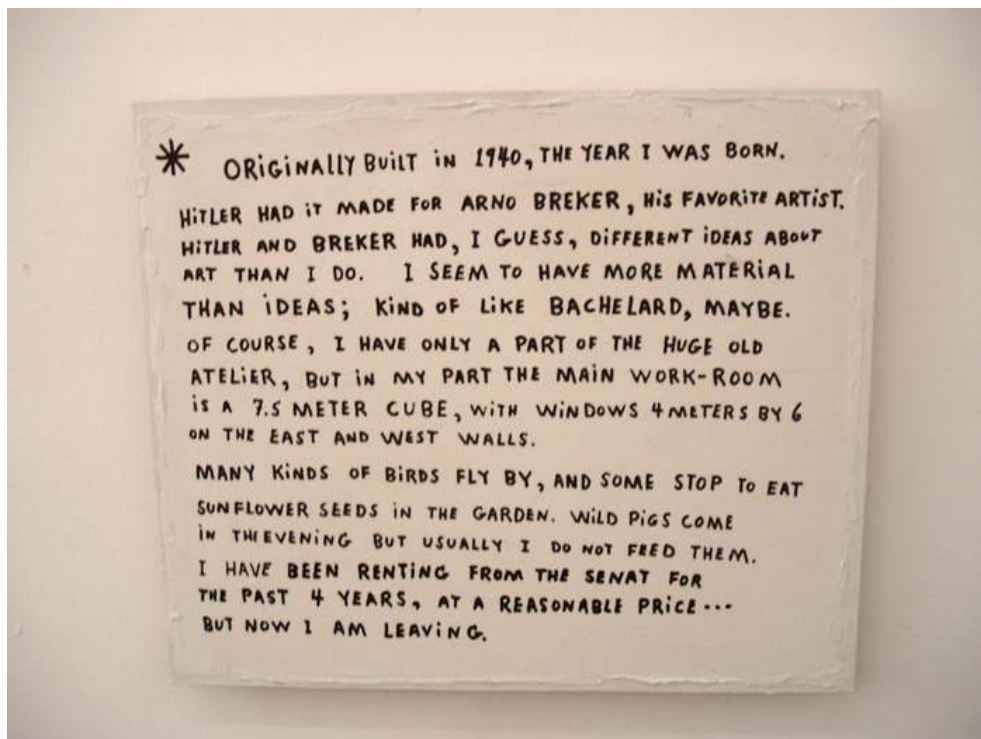 * ORiGiNALLY BUiLT iN 1940, THE YEAR I WAS BORN.
HiTLER HAD iT MADE FOR ARNO BREKER, HiS FAVORiTE ARTiST.
HiTLER AND BREKER HAD, I GUESS, DiFFERENT iDEAS ABOUT
ART THAN I DO. I SEEM TO HAVE MORE MATERiAL
THAN iDEAS; KiND OF LiKE BACHELARD, MAYBE.
OF COURSE, I HAVE ONLY A PART OF THE HUGE OLD
ATELiER, BUT iN MY PART THE MAiN WORK-ROOM
iS A 7.5 METER CUBE, WiTH WiNDOWS 4 METERS BY 6
ON THE EAST AND WEST WALLS.
MANY KiNDS OF BiRDS FLY BY, AND SOME STOP TO EAT
SUNFLOWER SEEDS iN THE GARDEN. WiLD PiGS COME
iN THE EVENiNG BUT USUALLY I DO NOT FEED THEM.
I HAVE BEEN RENTiNG FROM THE SENAT FOR
THE PAST 4 YEARS, AT A REASONABLE PRiCE...
BUT NOW I AM LEAViNG.